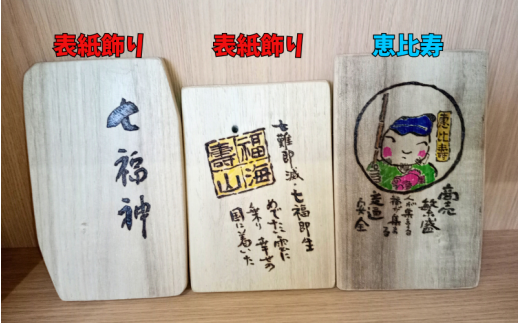 表紙飾り
七福神
表紙飾り
福海
壽山
七難即滅・七福即生
めでたい雲に
乗り幸せの
国に着いた
恵比寿
恵比寿
商売
繁盛
人が集まる
福が集まる
交通
安全